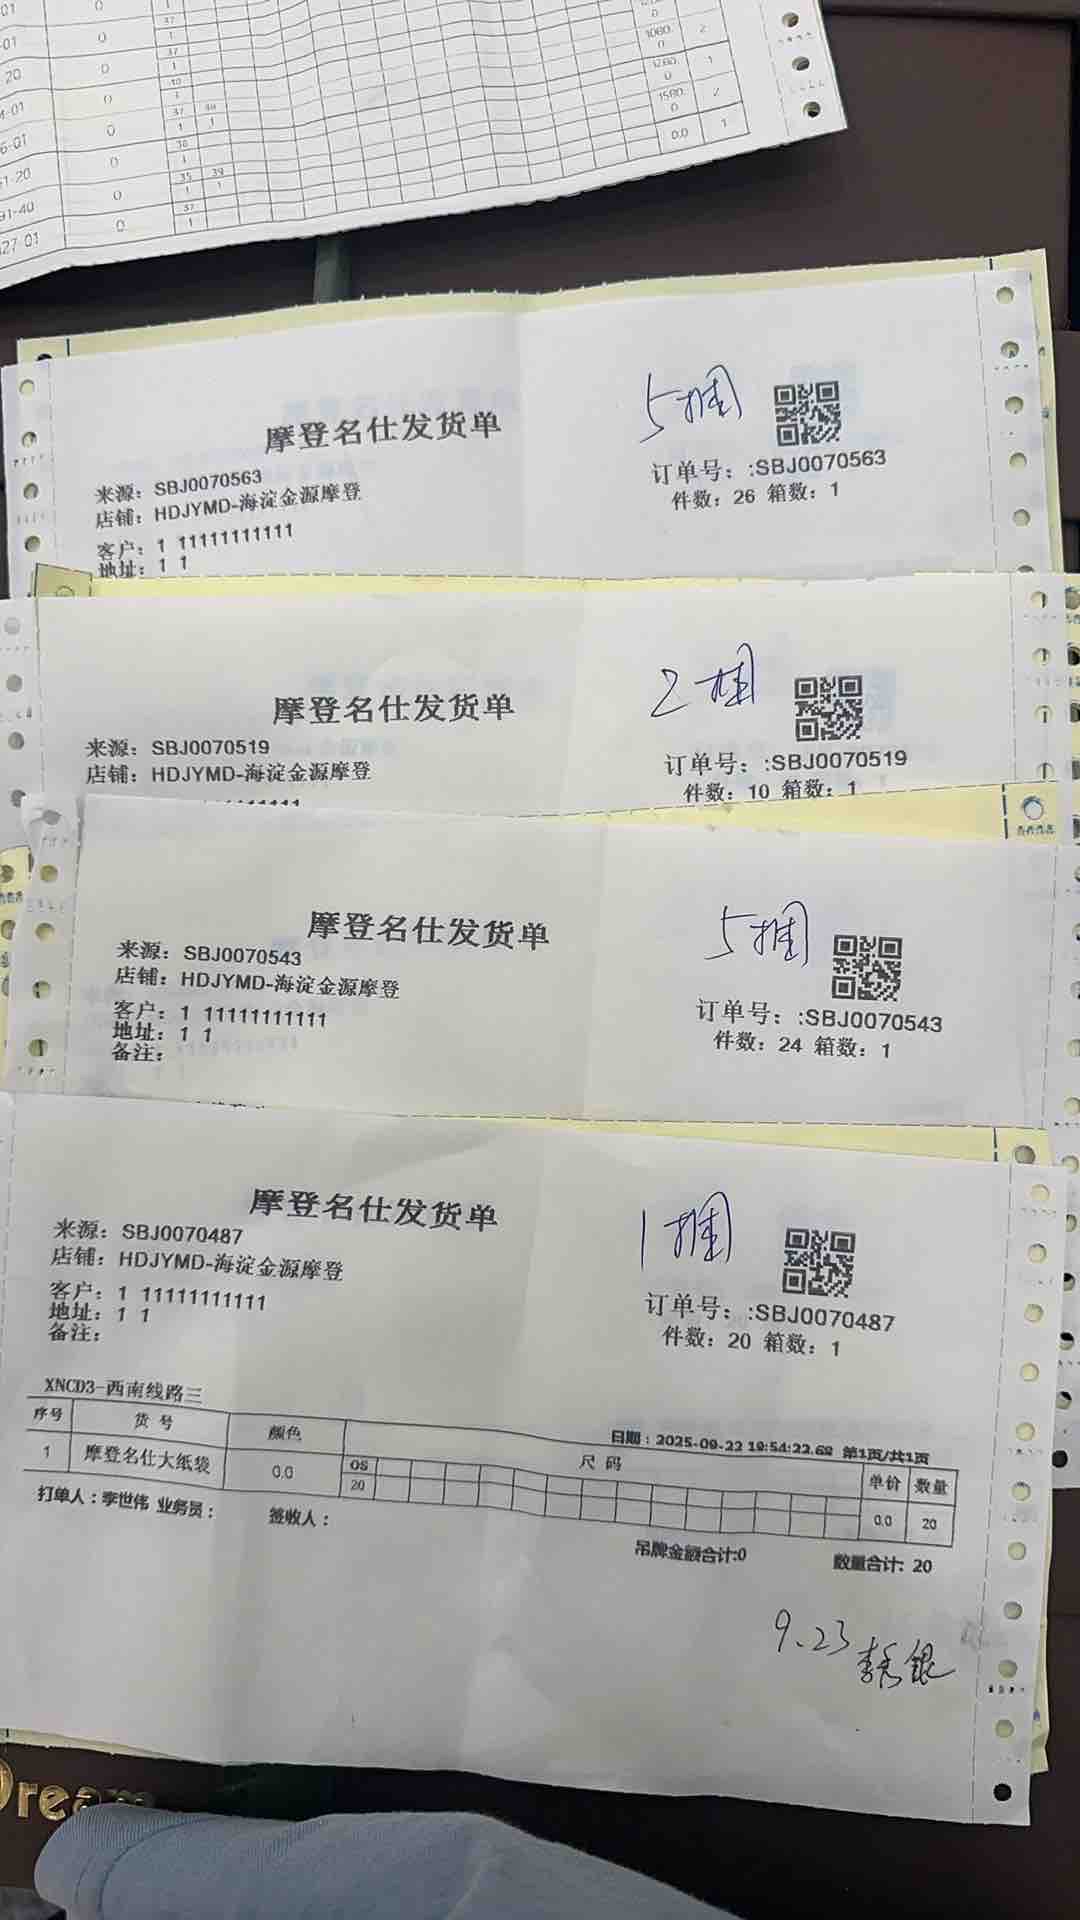 01
0
1
-01
0
37
1
1080.
0
2
20
0
10
1280.
0
1
4-01
0
37 38
1 1
1580.
0
2
6-01
0
36
1
0.0
1
1-20
0
35 39
1 1
91-40
0
37
1
27-01
0
5捆
摩登名仕发货单
来源：SBJ0070563
店铺：HDJYMD-海淀金源摩登
客户：1 11111111111
地址：1 1
订单号：:SBJ0070563
件数：26 箱数：1
2捆
摩登名仕发货单
来源：SBJ0070519
店铺：HDJYMD-海淀金源摩登
订单号：:SBJ0070519
件数：10 箱数：1
5捆
摩登名仕发货单
来源：SBJ0070543
店铺：HDJYMD-海淀金源摩登
客户：1 11111111111
地址：1 1
备注：
订单号：:SBJ0070543
件数：24 箱数：1
1捆
摩登名仕发货单
来源：SBJ0070487
店铺：HDJYMD-海淀金源摩登
客户：1 11111111111
地址：1 1
备注：
订单号：:SBJ0070487
件数：20 箱数：1
XNCD3-西南线路三
日期：2025-09-22 19:54:22.68 第1页/共1页
序号 货号 颜色 尺码 单价 数量
1 摩登名仕大纸袋 0.0 OS 20 0.0 20
打单人：李世伟 业务员： 签收人：
吊牌金额合计:0 数量合计: 20
9.23 李秀银
Dream